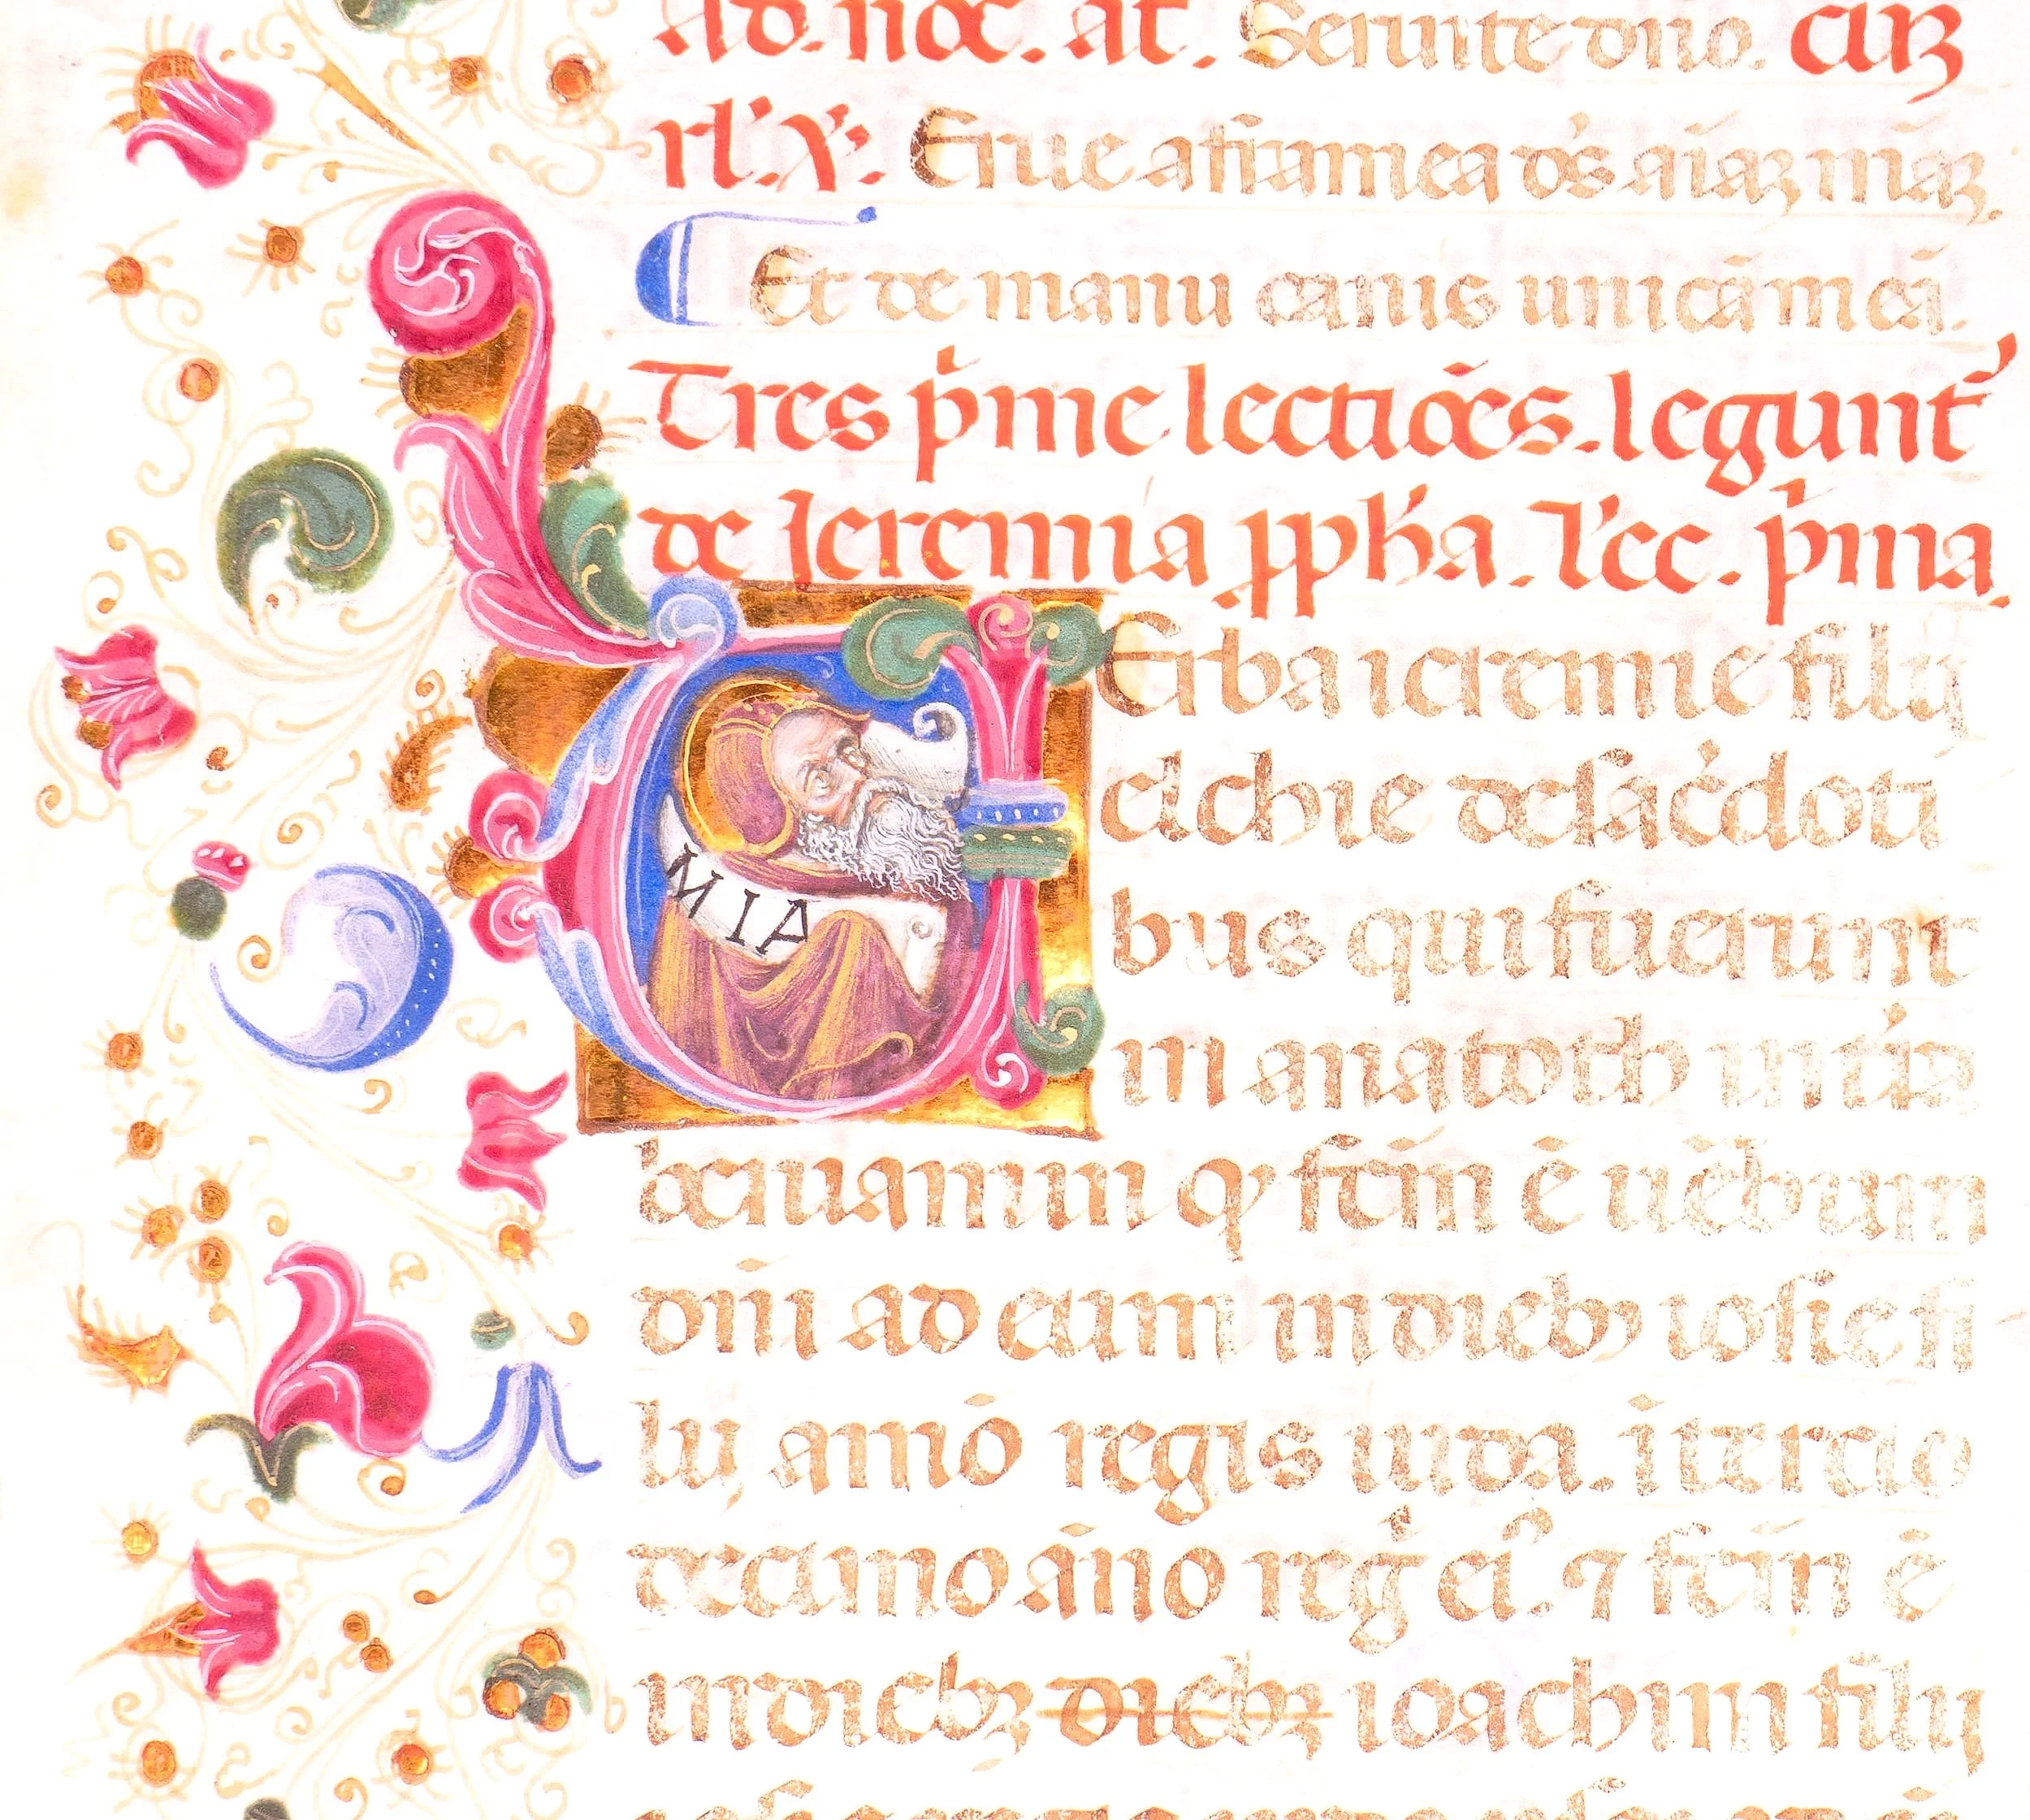 Ad. noc̄. at̄. Seruite dn̄o. cū ꝫ
rl'. ℣. Erue a framea d's aīaꝫ mēaꝫ.
Et de manu canis unicā meā.
Tres p̍me lectiōes. legunt᷑
de Jeremia ꝓph̄a. l'ec. p̍ma.
MIA
Erba ieremie filij
elchie de sac̓doti
bus qui fuerunt
in anatoth in t̓ra
beniamin qͥ fcm̄ ē uēbum
dn̄i ad eum in diebꝫ iosie fi
lij amō regis iuda. i tercio
decimo āno reg̓ ei᾽. ⁊ fcm̄ ē
in diebꝫ diebꝫ ioachim filij